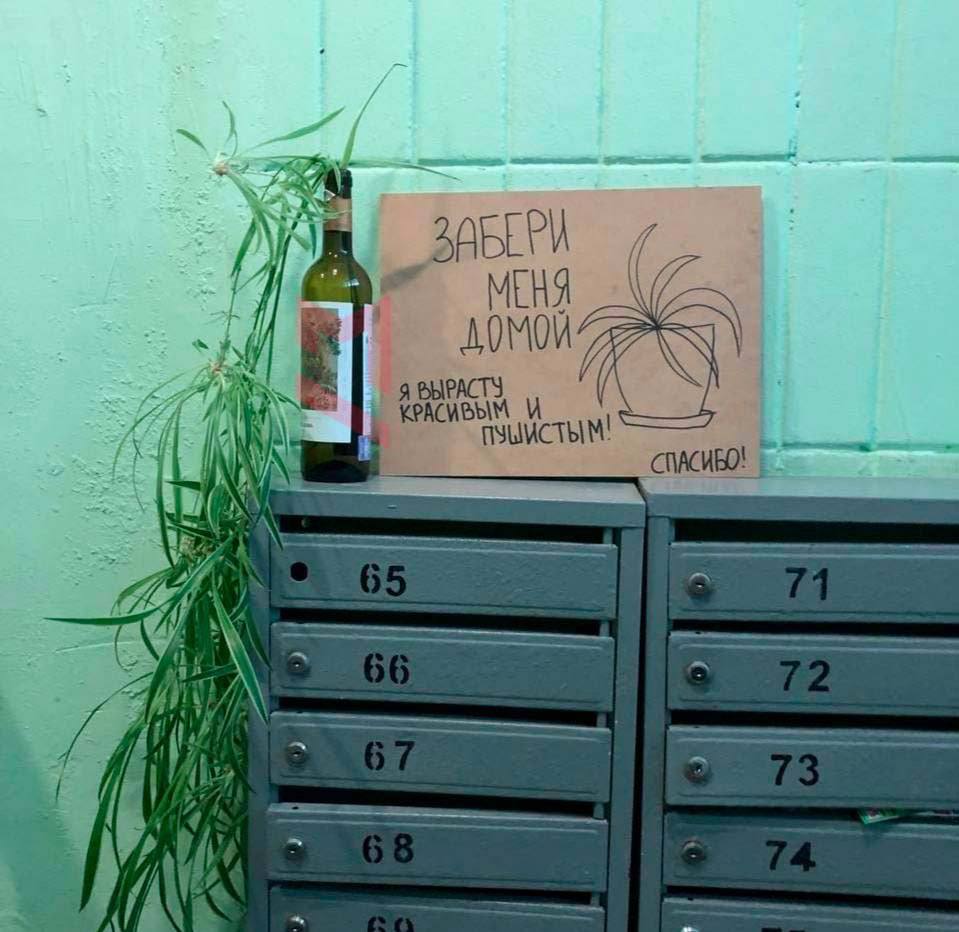 ЗАБЕРИ
МЕНЯ
ДОМОЙ
Я ВЫРАСТУ
КРАСИВЫМ И
ПУШИСТЫМ!
СПАСИБО!
65
66
67
68
69
71
72
73
74